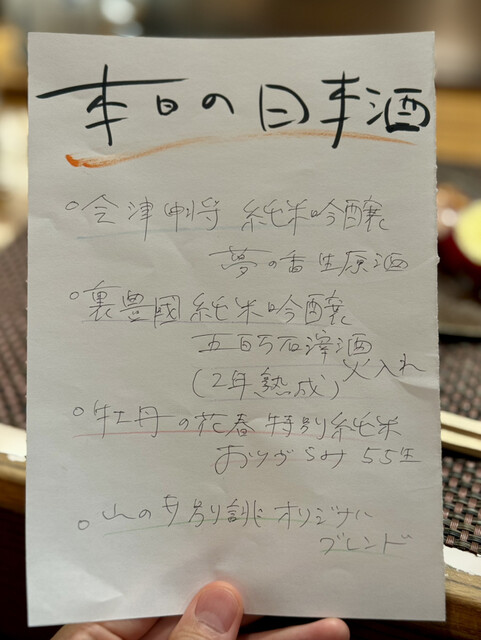 本日の日本酒
○会津中将 純米吟醸
夢の香生原酒
○裏豊國 純米吟醸
五百万石澤酒
火入れ
(2年熟成)
○牡丹の花春 特別純米
おりがらみ 55生
○山の井別誂オリジナル
ブレンド